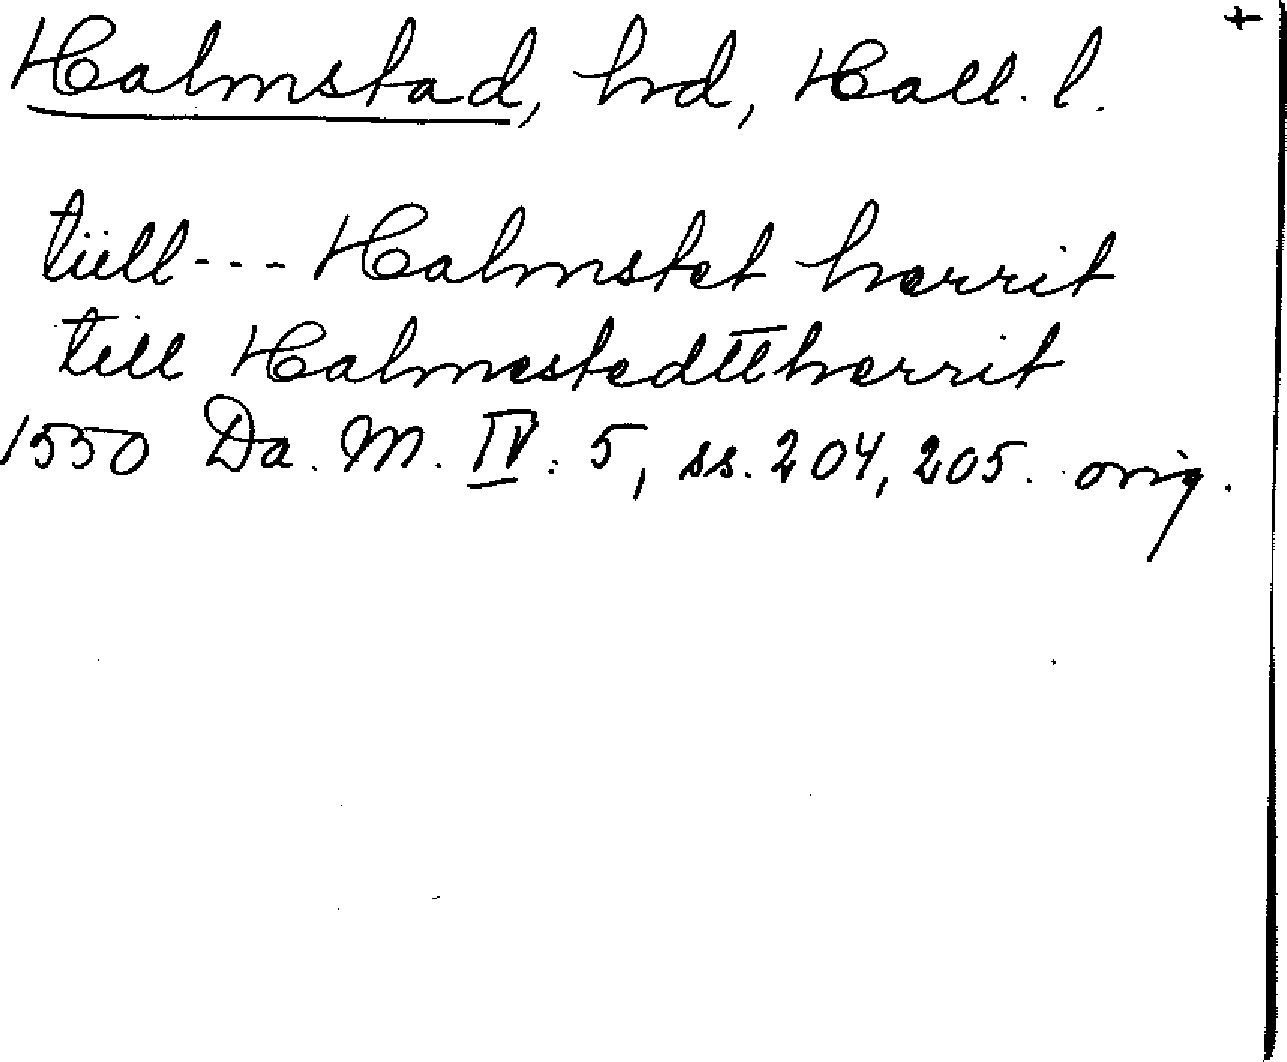 +
Halmstad, hd, Hall. l.
tiill --- Halmstet herrit
till Halmestedttherrit
1550 Da. M. IV: 5, ss. 204, 205. orig.